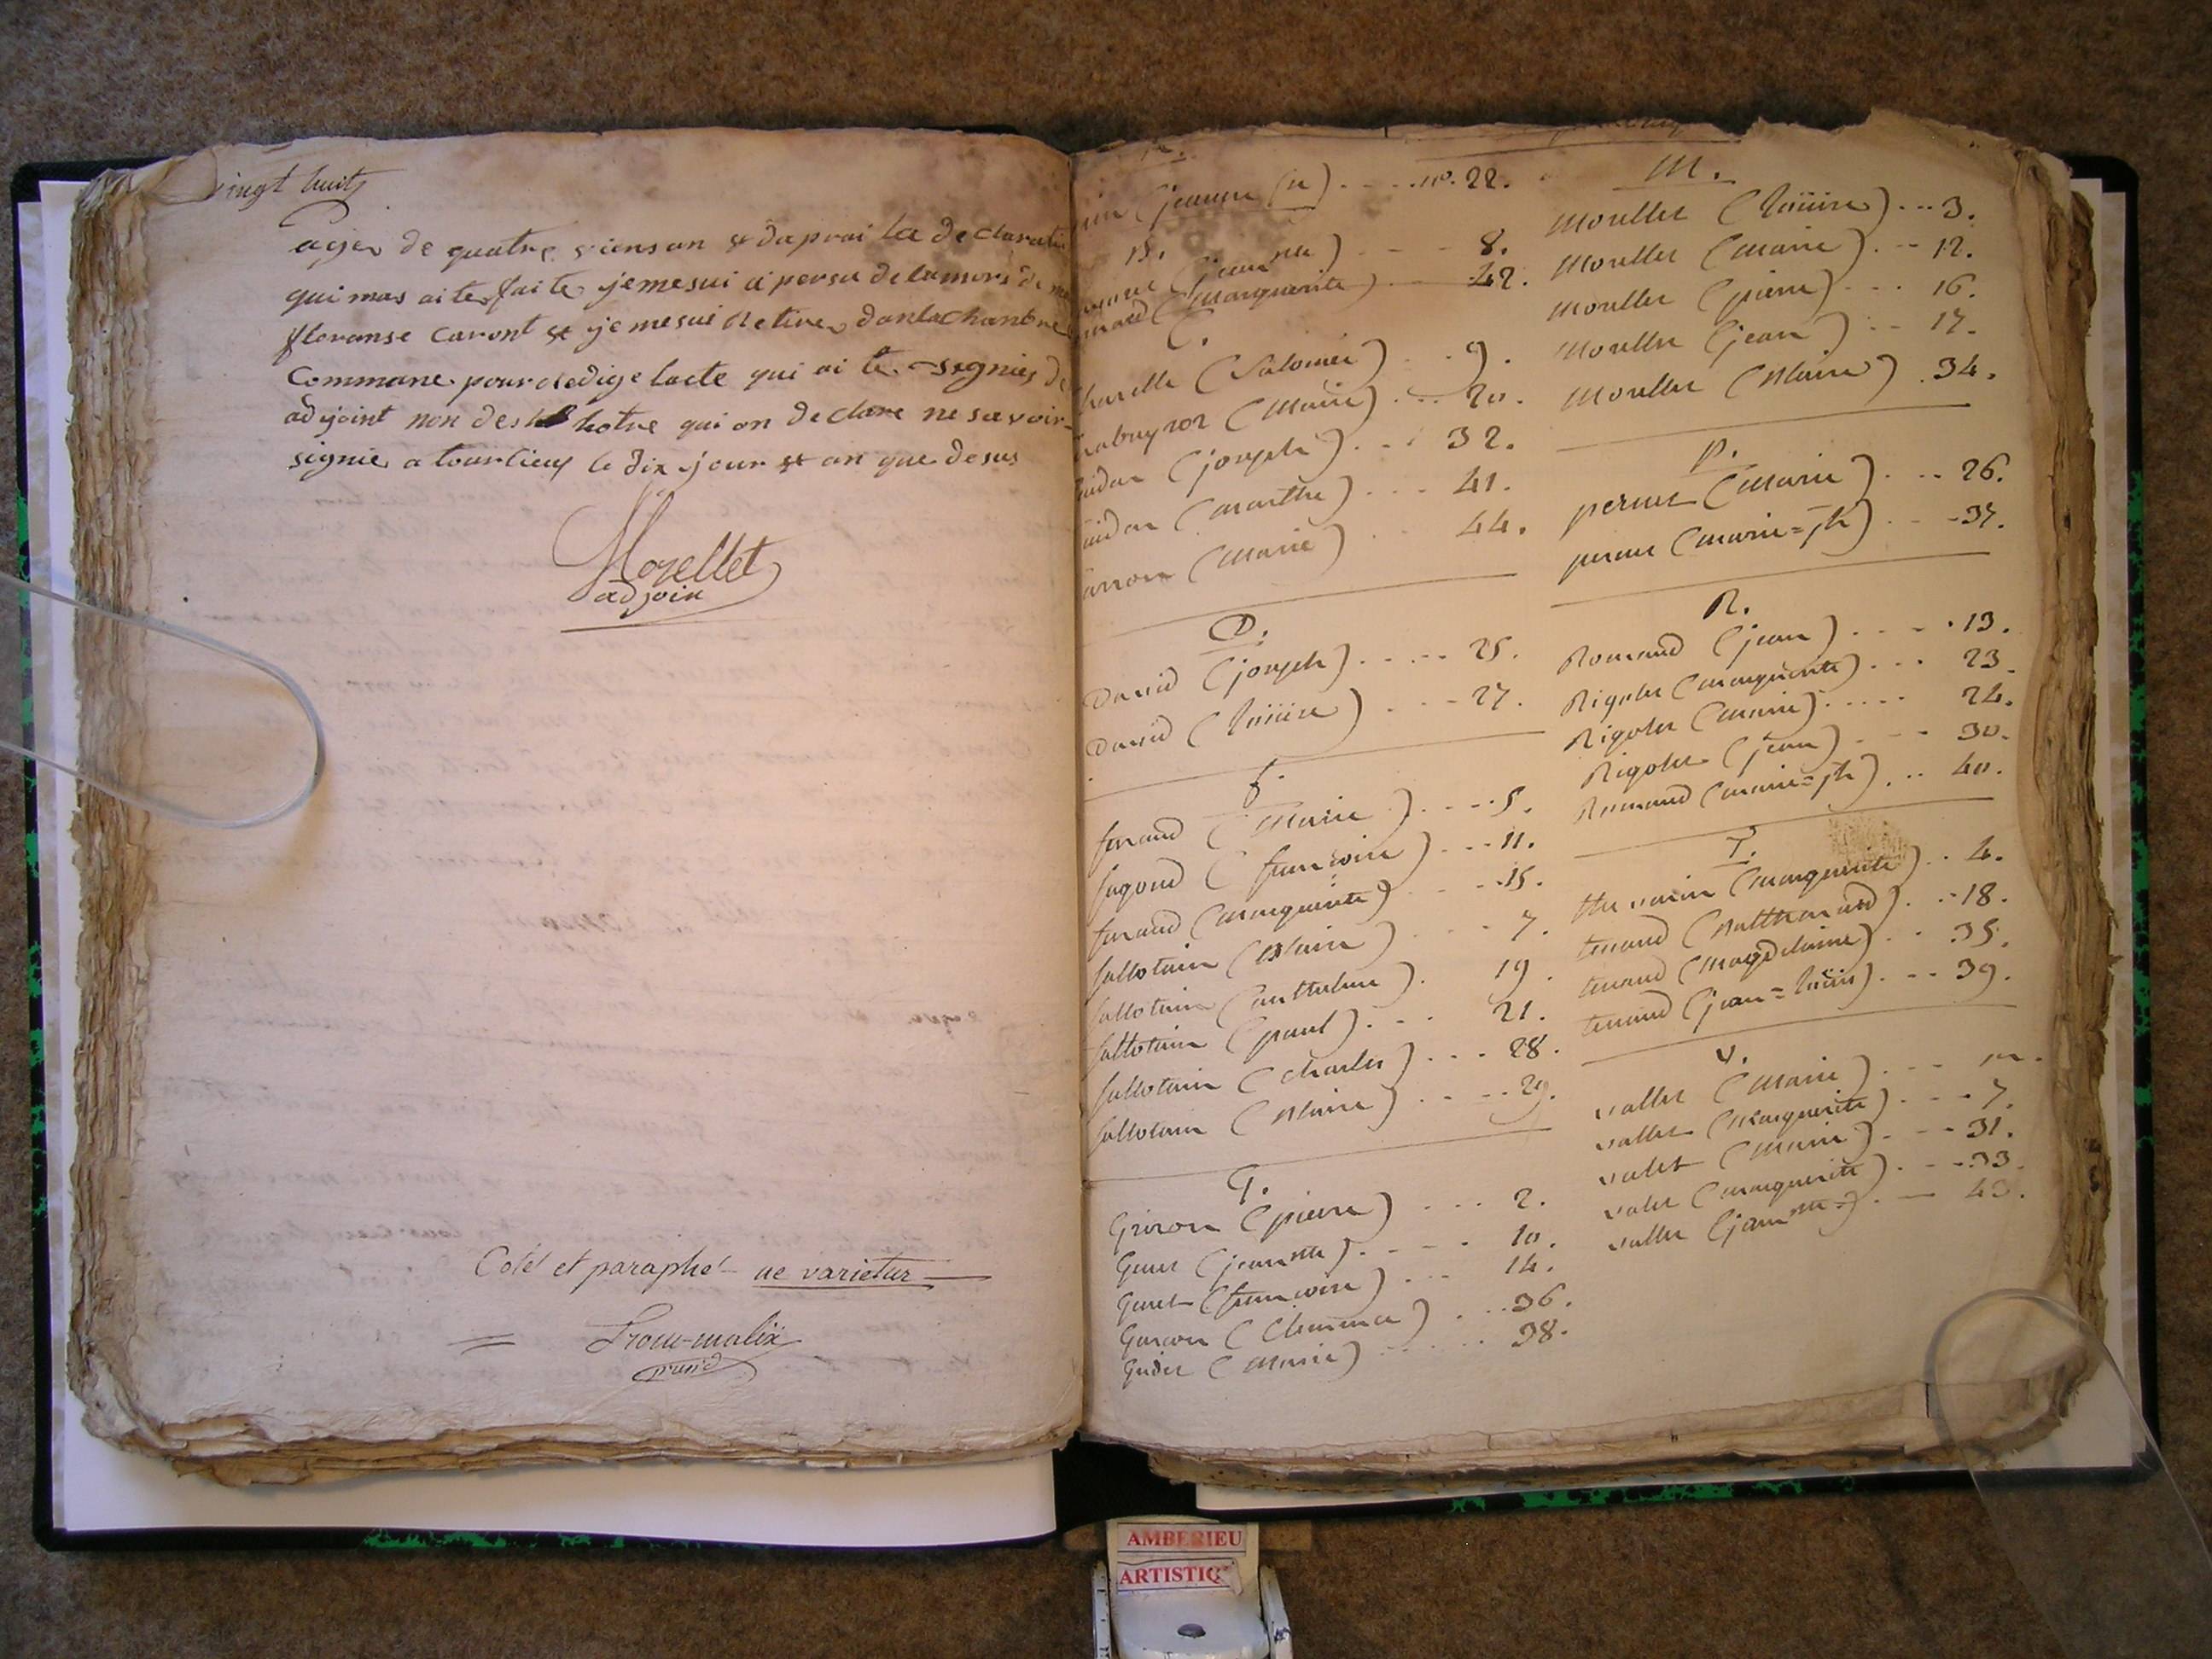 vingt huit
agé de quatre viens an & daprai la declaration
qui mas aite faite jemesui a persu de lamors de
floranse caront & jemesui retirer danlachanbre
Commane pour redige lacte qui ai té signies de
adjoint non des hotre qui on declare ne savoir
signie a tourtieux le dix jour & an que desus
Morellet
adjoin
Coté et paraphé ne varietur
présid
(jeanne ... ) .... no. 22.
B.
(jeannette) 8.
(marguerite) 42.
C.
(Salomée) .. 9.
(Marie) ... 20.
(joseph) ... 32.
(marthe) ... 41.
(Marie) .. 44.
D.
David (joseph) ..... 25.
David (loüise) .... 27.
f.
feraud (Marie) .... 5.
(francoise) ... 11.
feraud (marguerite) .... 15.
follotain (Marie) ... 7.
follotain (anthelme) . 19.
follotain (paul) ... 21.
follotain (charles) ... 28.
follotain (Marie) ..... 29.
G.
(pierre) .... 2.
(jeannette) ..... 10.
(francoise) ... 14.
(Clemence) ... 36.
(Marie) ...... 38.
M.
Morellet (loüise) ... 3.
Morellet (marie) ... 12.
Morellet (pierre) ... 16.
Morellet (jean) ... 17.
Morellet (Marie) . 34.
P.
pernet (Marie) .... 26.
pernet (marie=jh) ... 37.
R.
Romand (jean) .... 13.
Rigolet (marguerite) ... 23.
Rigolet (marie) ..... 24.
Rigolet (jean) ... 30.
Romand (marie=jh) ... 40.
T.
(marguerite) .. 4.
tenand (Balthazard) .. 18.
tenand (magdelaine) .. 35.
tenand (jean=loüis) ... 39.
V.
vallet (Marie) ...
vallet (Marguerite) .... 7.
valet (Marie) ... 31.
valet (marguerite) .... 33.
vallet (jeannette) .. 43.
AMBERIEU
ARTISTIQ